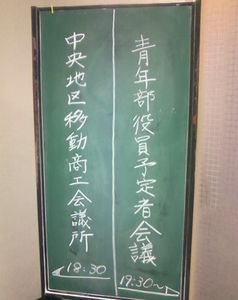 青年部役員予定者会議
19:30～
中央地区移動商工会議所
18:30